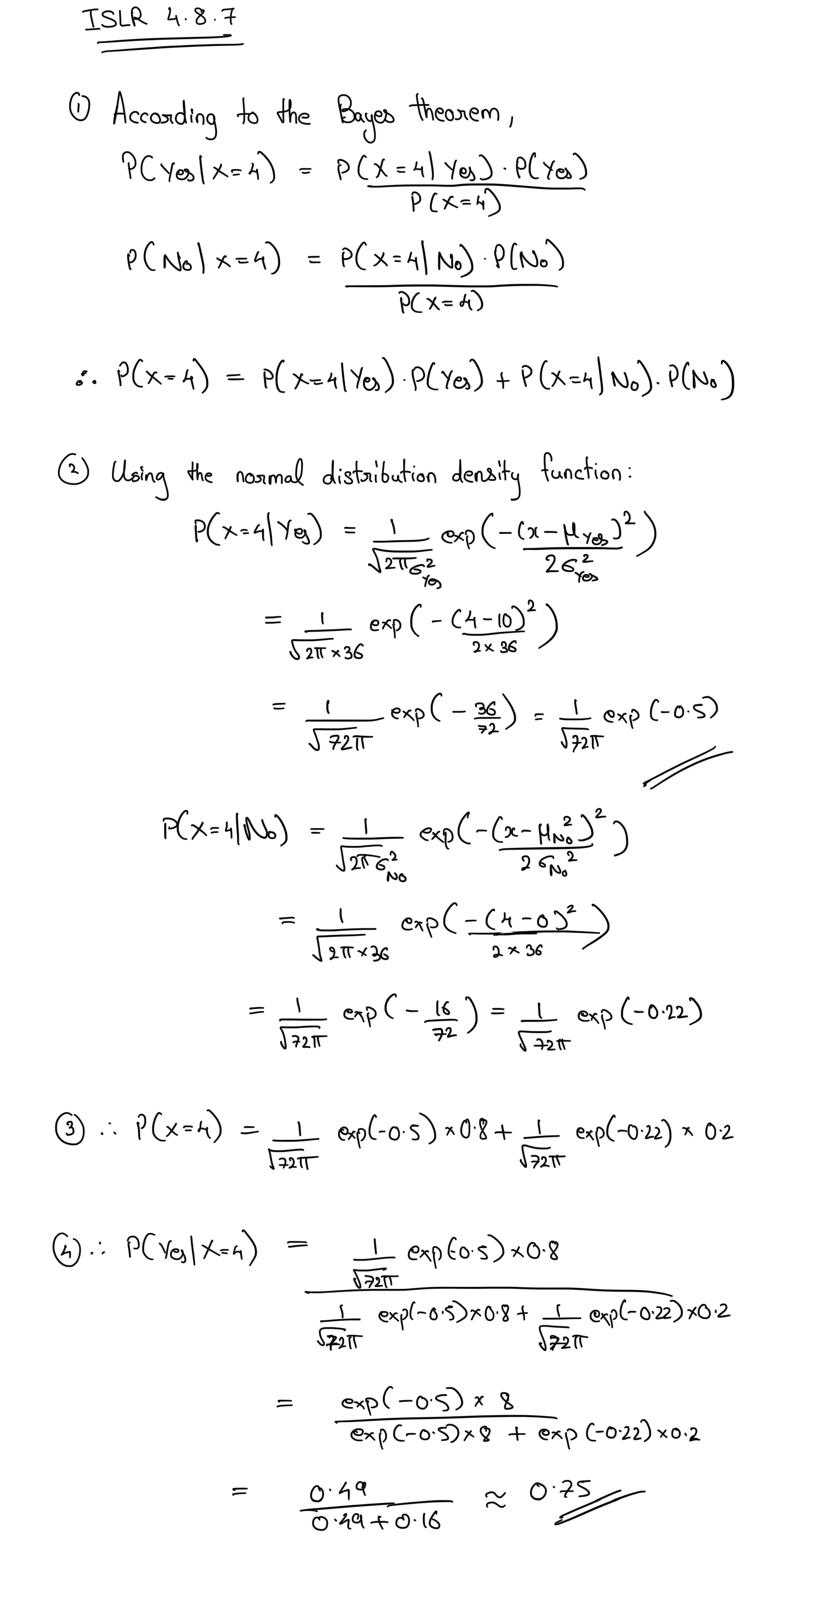 ISLR 4.8.7
① According to the Bayes theorem,
P(Yes|X=4) = P(X=4|Yes)·P(Yes)
P(X=4)
P(No|X=4) = P(X=4|No)·P(No)
P(X=4)
∴ P(X=4) = P(X=4|Yes)·P(Yes) + P(X=4|No)·P(No)
② Using the normal distribution density function:
P(X=4|Yes) = 1/√2πσ²Yes exp(-(x-μYes)²/2σ²Yes)
= 1/√2π×36 exp(-(4-10)²/2×36)
= 1/√72π exp(-36/72) = 1/√72π exp(-0.5)
P(X=4|No) = 1/√2πσ²No exp(-(x-μNo²)²/2σNo²)
= 1/√2π×36 exp(-(4-0)²/2×36)
= 1/√72π exp(-16/72) = 1/√72π exp(-0.22)
③ ∴ P(X=4) = 1/√72π exp(-0.5)×0.8 + 1/√72π exp(-0.22)×0.2
④ ∴ P(Yes|X=4) = 1/√72π exp(-0.5)×0.8
1/√72π exp(-0.5)×0.8 + 1/√72π exp(-0.22)×0.2
= exp(-0.5)×8
exp(-0.5)×8 + exp(-0.22)×0.2
= 0.49/0.49+0.16 ≈ 0.75